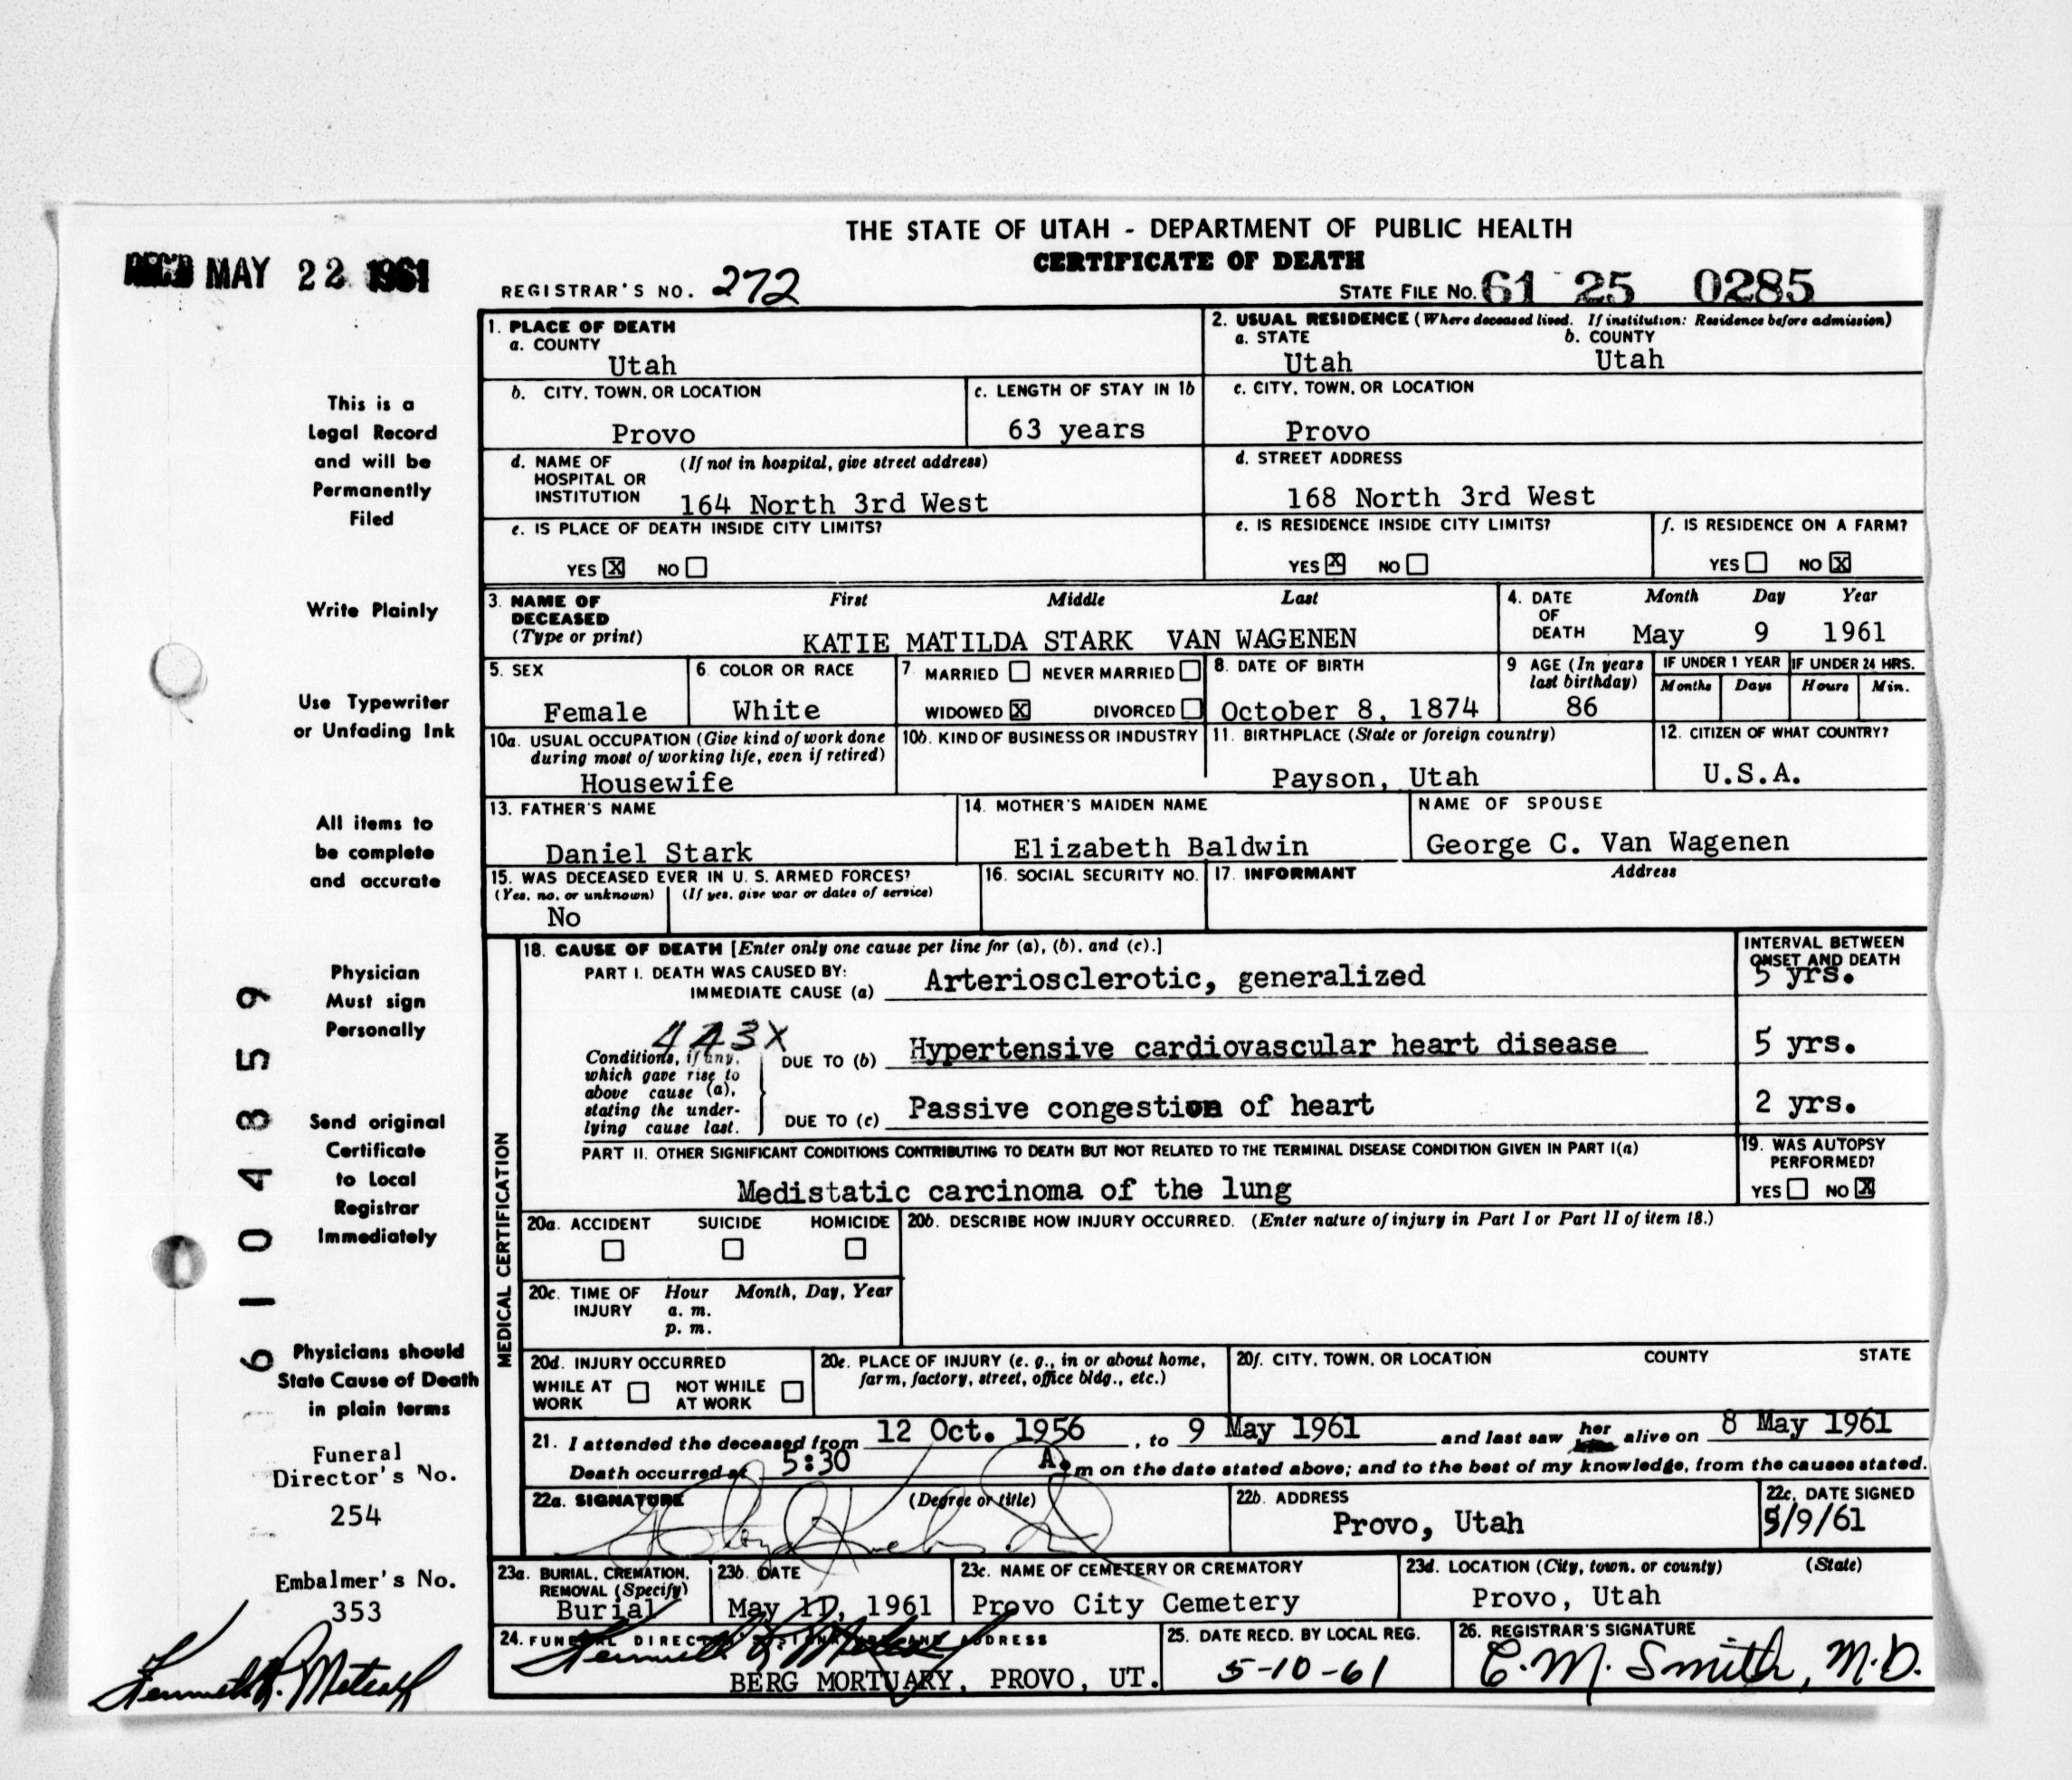 THE STATE OF UTAH - DEPARTMENT OF PUBLIC HEALTH
CERTIFICATE OF DEATH
REC'D MAY 22 1961
REGISTRAR'S NO. 272
STATE FILE NO. 61 25 0285
1. PLACE OF DEATH
a. COUNTY
Utah
2. USUAL RESIDENCE (Where deceased lived. If institution: Residence before admission)
a. STATE b. COUNTY
Utah Utah
b. CITY, TOWN, OR LOCATION
Provo
c. LENGTH OF STAY IN 1b
63 years
c. CITY, TOWN, OR LOCATION
Provo
d. NAME OF (If not in hospital, give street address)
HOSPITAL OR
INSTITUTION 164 North 3rd West
d. STREET ADDRESS
168 North 3rd West
e. IS PLACE OF DEATH INSIDE CITY LIMITS?
YES X NO
e. IS RESIDENCE INSIDE CITY LIMITS?
YES X NO
f. IS RESIDENCE ON A FARM?
YES NO X
3. NAME OF First Middle Last
DECEASED
(Type or print) KATIE MATILDA STARK VAN WAGENEN
4. DATE Month Day Year
OF
DEATH May 9 1961
5. SEX
Female
6. COLOR OR RACE
White
7 MARRIED NEVER MARRIED
WIDOWED X DIVORCED
8. DATE OF BIRTH
October 8, 1874
9 AGE (In years
last birthday)
86
IF UNDER 1 YEAR
Months Days
IF UNDER 24 HRS.
Hours Min.
10a. USUAL OCCUPATION (Give kind of work done
during most of working life, even if retired)
Housewife
10b. KIND OF BUSINESS OR INDUSTRY
11. BIRTHPLACE (State or foreign country)
Payson, Utah
12. CITIZEN OF WHAT COUNTRY?
U.S.A.
13. FATHER'S NAME
Daniel Stark
14. MOTHER'S MAIDEN NAME
Elizabeth Baldwin
NAME OF SPOUSE
George C. Van Wagenen
15. WAS DECEASED EVER IN U. S. ARMED FORCES?
(Yes, no, or unknown) (If yes, give war or dates of service)
No
16. SOCIAL SECURITY NO.
17. INFORMANT Address
MEDICAL CERTIFICATION
18. CAUSE OF DEATH [Enter only one cause per line for (a), (b), and (c).]
INTERVAL BETWEEN
ONSET AND DEATH
PART I. DEATH WAS CAUSED BY:
IMMEDIATE CAUSE (a) Arteriosclerotic, generalized 5 yrs.
443X
Conditions, if any,
which gave rise to
above cause (a),
stating the under-
lying cause last.
DUE TO (b) Hypertensive cardiovascular heart disease 5 yrs.
DUE TO (c) Passive congestion of heart 2 yrs.
PART II. OTHER SIGNIFICANT CONDITIONS CONTRIBUTING TO DEATH BUT NOT RELATED TO THE TERMINAL DISEASE CONDITION GIVEN IN PART I(a)
Medistatic carcinoma of the lung
19. WAS AUTOPSY
PERFORMED?
YES NO X
20a. ACCIDENT SUICIDE HOMICIDE
20b. DESCRIBE HOW INJURY OCCURRED. (Enter nature of injury in Part I or Part II of item 18.)
20c. TIME OF Hour Month, Day, Year
INJURY a. m.
p. m.
20d. INJURY OCCURRED
WHILE AT NOT WHILE
WORK AT WORK
20e. PLACE OF INJURY (e. g., in or about home,
farm, factory, street, office bldg., etc.)
20f. CITY, TOWN, OR LOCATION COUNTY STATE
21. I attended the deceased from 12 Oct. 1956, to 9 May 1961 and last saw her alive on 8 May 1961
Death occurred at 5:30 A.m on the date stated above; and to the best of my knowledge, from the causes stated.
22a. SIGNATURE (Degree or title)
22b. ADDRESS
Provo, Utah
22c. DATE SIGNED
5/9/61
23a. BURIAL, CREMATION,
REMOVAL (Specify)
Burial
23b. DATE
May 1, 1961
23c. NAME OF CEMETERY OR CREMATORY
Provo City Cemetery
23d. LOCATION (City, town, or county) (State)
Provo, Utah
24. FUNERAL DIRECTOR'S SIGNATURE AND ADDRESS
BERG MORTUARY, PROVO, UT.
25. DATE RECD. BY LOCAL REG.
5-10-61
26. REGISTRAR'S SIGNATURE
E. M. Smith, M.D.
This is a
Legal Record
and will be
Permanently
Filed
Write Plainly
Use Typewriter
or Unfading Ink
All items to
be complete
and accurate
Physician
Must sign
Personally
Send original
Certificate
to Local
Registrar
Immediately
Physicians should
State Cause of Death
in plain terms
61104859
Funeral
Director's No.
254
Embalmer's No.
353
Kenneth R. Metcalf